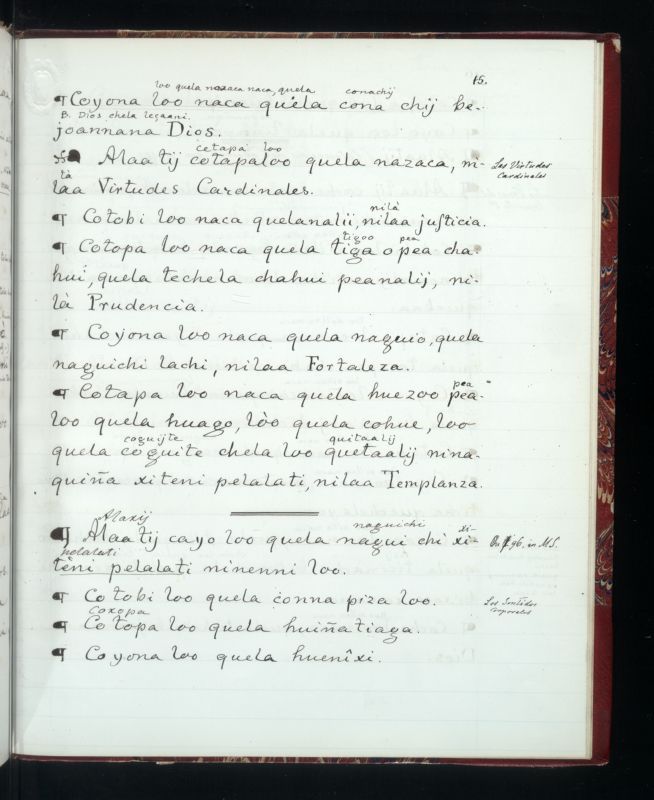 15.
loo quela nazaca naca, quela conachij
¶ Coyona loo naca quéla cona chij be-
B. Dios chela lezaani.
joannana Dios.
cetapa loo
Alaatij cotapaloo quela nazaca, ni-
Las Virtudes Cardinales
la
làa Virtudes Cardinales.
nilà
¶ Cotobi loo naca quelanalii, nilaa justicia.
tigoo pea
¶ Cotopa loo naca quela tiga o pea cha-
hui, quela techela chahui peanalij, ni-
là Prudencia.
¶ Coyona loo naca quela naguio, quela
naguichi lachi, nilaa Fortaleza.
pea
¶ Cotapa loo naca quela huezoo pea-
loo quela huago, lòo quela cohue, loo
coguijte quitaalij
quela coguite chela loo quetaalij nina-
quiña xiteni pelalati, nilaa Templanza.
Alaxij naguichi xi-
¶ Alaatij cayo loo quela nagui chi xi-
On ¶ 96, in MS.
pelalati
tèni pelalati ninenni loo.
¶ Cotobi loo quela conna piza loo.
Los Sentidos corporales
coxopa
¶ Cotopa loo quela huiñatiaga.
¶ Coyona loo quela huenîxi.